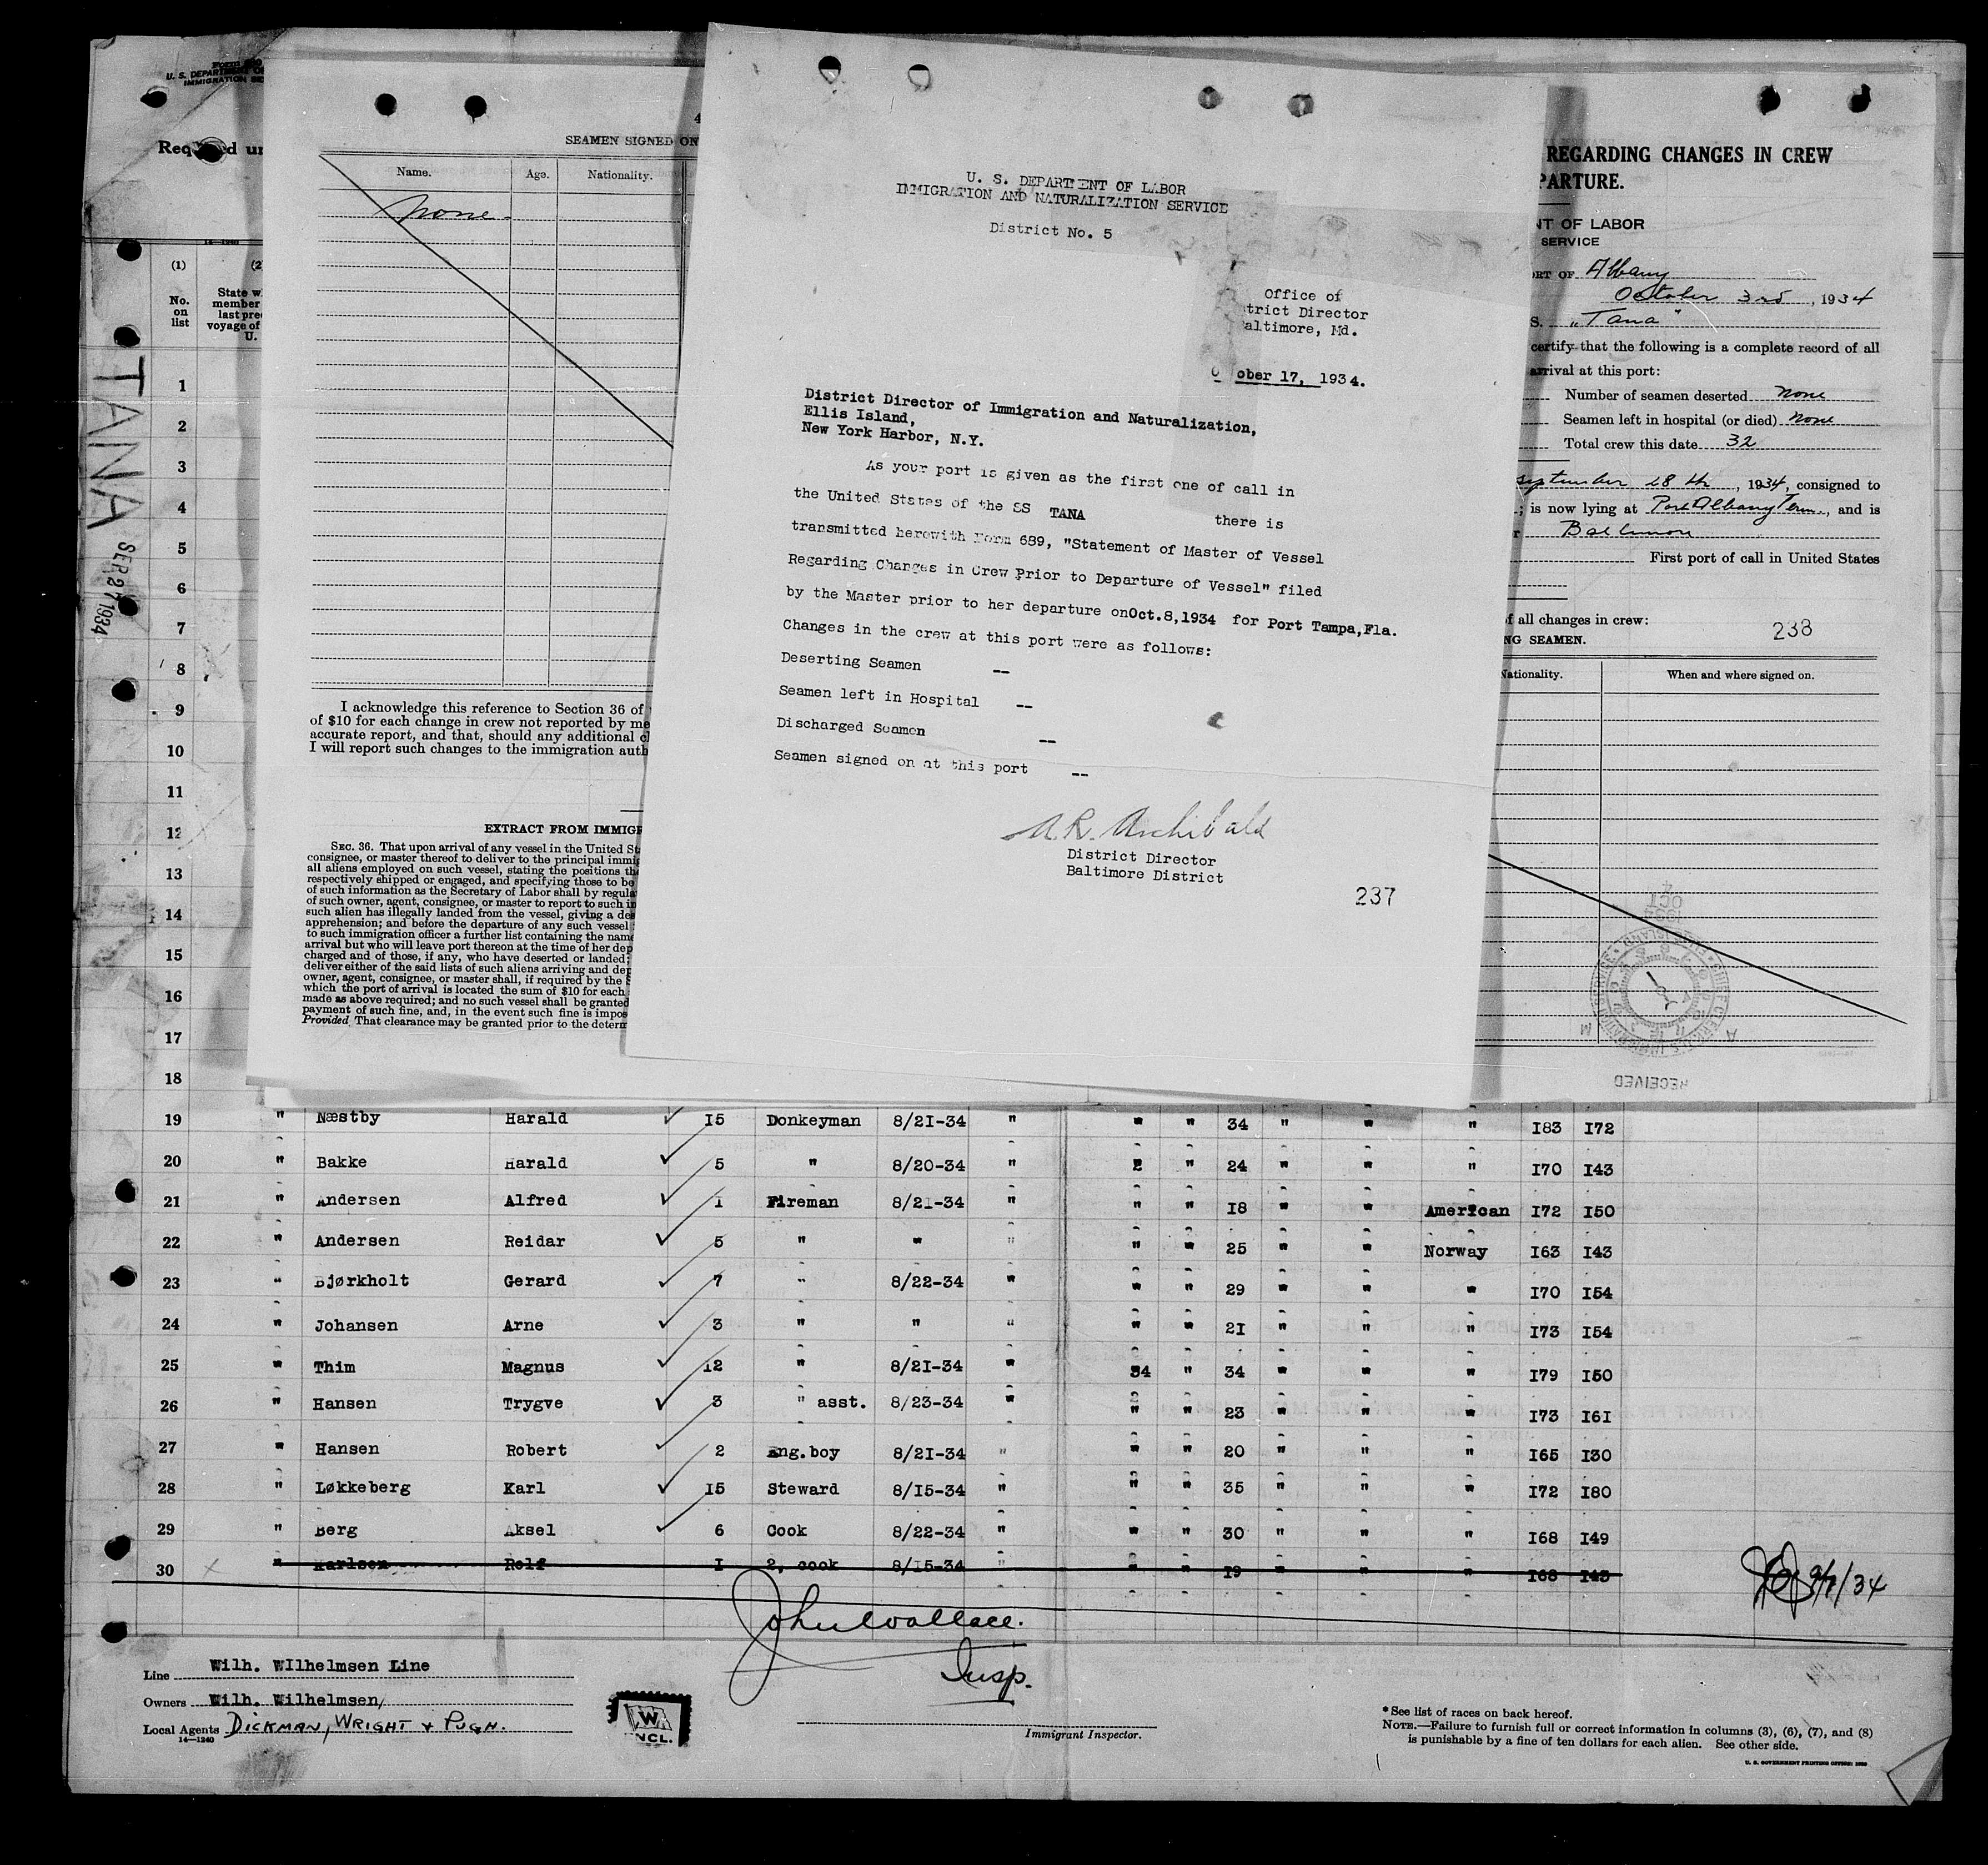 U. S. DEPARTMENT OF LABOR
IMMIGRATION AND NATURALIZATION SERVICE
District No. 5
Office of
trict Director
altimore, Md.
ober 17, 1934.
District Director of Immigration and Naturalization,
Ellis Island,
New York Harbor, N.Y.
As your port is given as the first one of call in
the United States of the SS TANA there is
transmitted herewith Form 689, "Statement of Master of Vessel
Regarding Changes in Crew Prior to Departure of Vessel" filed
by the Master prior to her departure onOct.8,1934 for Port Tampa,Fla.
Changes in the crew at this port were as follows:
Deserting Seamen --
Seamen left in Hospital --
Discharged Seamen --
Seamen signed on at this port --
A.R. Archibald
District Director
Baltimore District
237
SEAMEN SIGNED ON
Name. Age. Nationality.
None
I acknowledge this reference to Section 36 of
of $10 for each change in crew not reported by me
accurate report, and that, should any additional
I will report such changes to the immigration auth
EXTRACT FROM IMMIGR
SEC. 36. That upon arrival of any vessel in the United St
consignee, or master thereof to deliver to the principal immig
all aliens employed on such vessel, stating the positions the
respectively shipped or engaged, and specifying those to be
of such information as the Secretary of Labor shall by regula
of such owner, agent, consignee, or master to report to such im
such alien has illegally landed from the vessel, giving a des
apprehension; and before the departure of any such vessel
to such immigration officer a further list containing the name
arrival but who will leave port thereon at the time of her dep
charged and of those, if any, who have deserted or landed;
deliver either of the said lists of such aliens arriving and dep
owner, agent, consignee, or master shall, if required by the
which the port of arrival is located the sum of $10 for each
made as above required; and no such vessel shall be granted
payment of such fine, and, in the event such fine is impos
Provided That clearance may be granted prior to the determ
REGARDING CHANGES IN CREW
PARTURE.
NT OF LABOR
SERVICE
ORT OF Albany
October 3rd, 1934
S. "Tana"
certify that the following is a complete record of all
arrival at this port:
Number of seamen deserted none
Seamen left in hospital (or died) none
Total crew this date 32
September 28th, 1934, consigned to
; is now lying at Port Albany Term., and is
r Baltimore
First port of call in United States
f all changes in crew:
NG SEAMEN.
238
Nationality. When and where signed on.
RECEIVED
U. S. DEPARTMENT OF
IMMIGRATION SE
Required un
(1) (2
No. on list
State w
member
last pre
voyage of
U.
TANA
SEP 27 1934
1
2
3
4
5
6
7
8
9
10
11
12
13
14
15
16
17
18
19 " Næstby Harald 15 Donkeyman 8/21-34 " " " 34 " " " 183 172
20 " Bakke Harald 5 " 8/20-34 " 2 " 24 " " " 170 143
21 " Andersen Alfred 1 Fireman 8/21-34 " " " 18 " " American 172 150
22 " Andersen Reidar 5 " " " " " 25 " " Norway 163 143
23 " Bjørkholt Gerard 7 " 8/22-34 " " " 29 " " " 170 154
24 " Johansen Arne 3 " " " " " 21 " " " 173 154
25 " Thim Magnus 12 " 8/21-34 " 34 " 34 " " " 179 150
26 " Hansen Trygve 3 " asst. 8/23-34 " " " 23 " " " 173 161
27 " Hansen Robert 2 Eng.boy 8/21-34 " " " 20 " " " 165 130
28 " Løkkeberg Karl 15 Steward 8/15-34 " " " 35 " " " 172 180
29 " Berg Aksel 6 Cook 8/22-34 " " " 30 " " " 168 149
30 " Karlsen Rolf 1 2, cook 8/15-34 " " " 19 " " " 168 145
John Wallace.
Insp.
Immigrant Inspector.
Line Wilh. WIlhelmsen Line
Owners Wilh. Wilhelmsen,
Local Agents DICKMAN, WRIGHT + PUGH.
14—1240
W
NCL.
* See list of races on back hereof.
NOTE.—Failure to furnish full or correct information in columns (3), (6), (7), and (8)
is punishable by a fine of ten dollars for each alien. See other side.
U. S. GOVERNMENT PRINTING OFFICE: